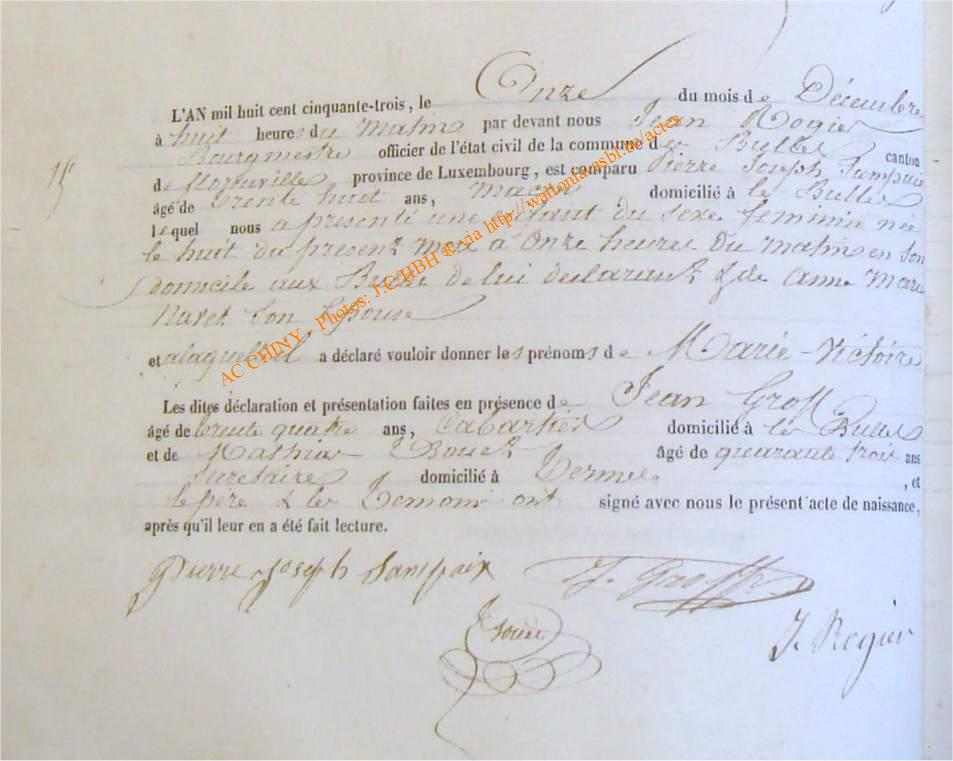 L'AN mil huit cent cinquante-trois, le Onze du mois de Décembre
à huit heures du Matin par devant nous Jean Rogier
Bourgmestre officier de l'état civil de la commune des Bulles canton
de florenville province de Luxembourg, est comparu Pierre Joseph
âgé de trente huit ans, domicilié à les Bulles
lequel nous a présenté une Enfant du sexe feminin née
le huit du present Mois à Onze heures Du Matin en son
domicile aux Bulles de lui declarant & de Anne Marie
Navet son Epouse
et a laquelle il a déclaré vouloir donner les prénoms de Marie-Victoire
Les dites déclaration et présentation faites en présence de Jean Groff
âgé de trente quatre ans, Cabartier domicilié à les Bulles
et de Mathias âgé de quarante trois ans
Secretaire domicilié à Termes , et
le père & les Temoins ont signé avec nous le présent acte de naissance,
après qu'il leur en a été fait lecture.
Pierre Joseph Sampaix J. Groff
J. Rogier
AC CHINY - Photos: J.C/HBH ® via http://wallonia-asbl.be/actes